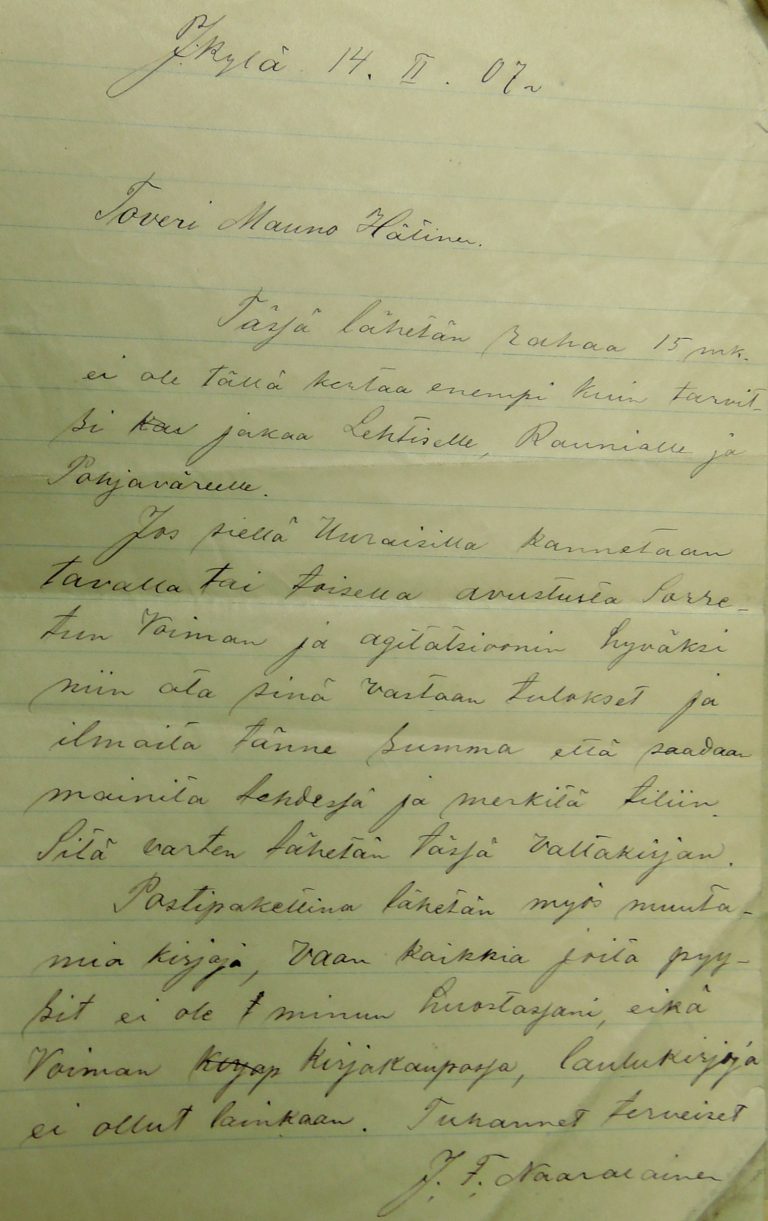 J:kylä 14. II. 07.
Toveri Mauno Hätinen.
Tässä lähetän rahaa 15 mk.
ei ole tällä kertaa enempi kuin tarvit-
si jakaa Lehtiselle, Raunialle ja
Pohjaväreelle.
Jos siellä Uuraisilla kannetaan
tavalla tai toisella avustusta Sorre-
tun Voiman ja agitatsioonin hyväksi
niin ota sinä vastaan tulokset ja
ilmoita tänne summa että saadaan
mainita lehdessä ja merkitä tiliin.
Sitä varten lähetän tässä valtakirjan.
Postipakettina lähetän myös muuta-
mia kirjoja, vaan kaikkia joita pyy-
sit ei ole minun huostassani, eikä
Voiman kirjakaupassa, laulukirjoja
ei ollut lainkaan. Tuhannet terveiset
J. F.